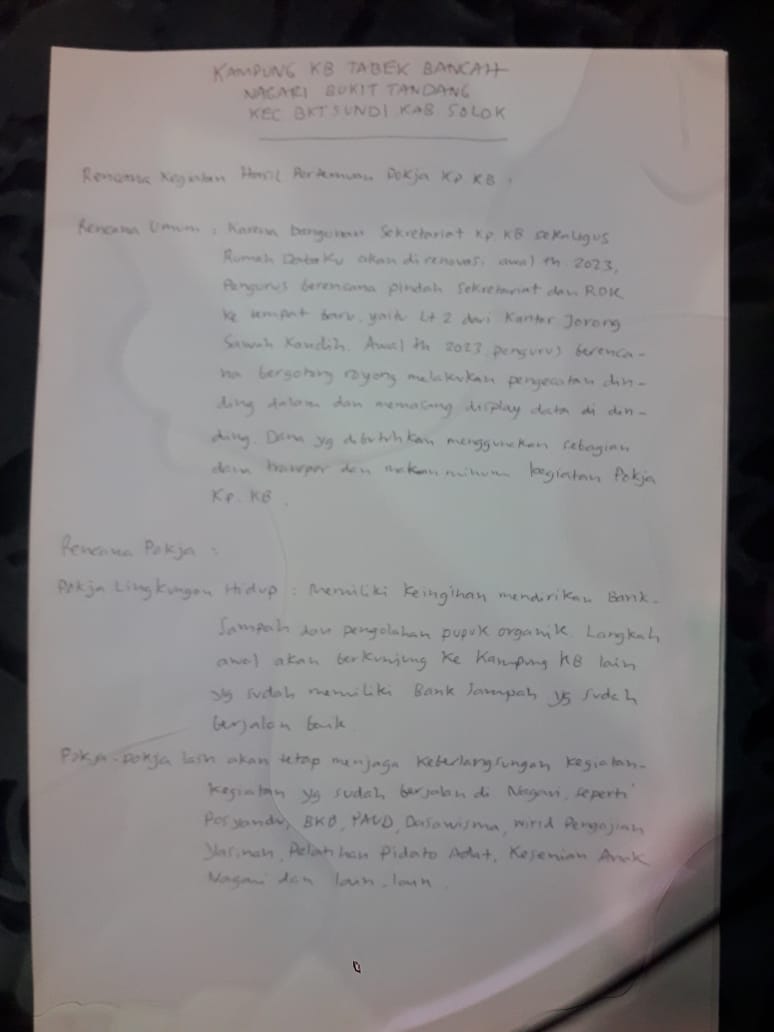 KAMPUNG KB TABEK BANCAH
NAGARI BUKIT TANDANG
KEC BKT SUNDI KAB SOLOK
Rencana Kegiatan Hasil Pertemuan Pokja Kp KB.
Rencana Umum : Karena bangunan Sekretariat Kp. KB sekaligus
Rumah Dataku akan direnovasi awal th 2023,
Pengurus berencana pindah Sekretariat dan RDK
ke tempat baru, yaitu Lt 2 dari Kantor Jorong
Sawah Kandih. Awal th 2023 pengurus berenca-
na bergotong royong melakukan pengecatan din-
ding dalam dan memasang display data di din-
ding. Dana yg dibutuhkan menggunakan sebagian
dana transpor dan makan minum kegiatan Pokja
Kp. KB.
Rencana Pokja :
Pokja Lingkungan Hidup : Memiliki keinginan mendirikan Bank-
Sampah dan pengolahan pupuk organik. Langkah
awal akan berkunjung ke Kampung KB lain
yg sudah memiliki Bank Sampah yg sudah
berjalan baik.
Pokja-pokja lain akan tetap menjaga keberlangsungan kegiatan-
kegiatan yg sudah berjalan di Nagari, seperti
Posyandu, BKB, PAUD, Dasawisma, wirid Pengajian
Yasinan, Pelatihan Pidato Adat, Kesenian Anak
Nagari dan lain-lain.